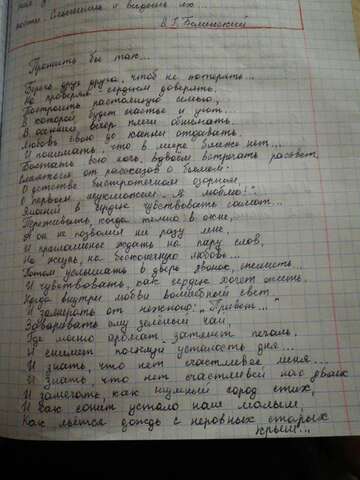 В.Г. Белинский
Прожить бы так...
Беречь друг друга, чтоб не потерять...
Не проверяя, сердцем доверять,
Построить настоящую семью,
В которой будет счастье и уют...
В осенний вечер плечи обнимать,
Любовь свою до капли отдавать,
И понимать, что в мире ближе нет...
Болтать всю ночь, вдвоём встречать рассвет,
от рассказов о былом:
О детстве быстротечном озорном,
О первом неуклюжем: "Я люблю!",
в сердце чувствовать
Переживать, когда темно в окне,
А он не позвонил ни разу мне,
И приглашение ждать на пару слов,
На жизнь, на бесконечную любовь...
Потом услышать в дверь звонок,
И чувствовать, как сердце хочет жить,
Когда внутри любви волшебный свет
И замирать от нежного: "Привет"...
Заваривать ему зелёный чай,
Где мятно аромат затмит печаль,
И снимет помощи усталость дня...
И знать, что нет счастливее меня...
И знать, что нет счастливей нас двоих
И замечать, как шумный город стих,
И как сопит устало наш малыш,
Как льётся дождь с неровных старых
крыш...